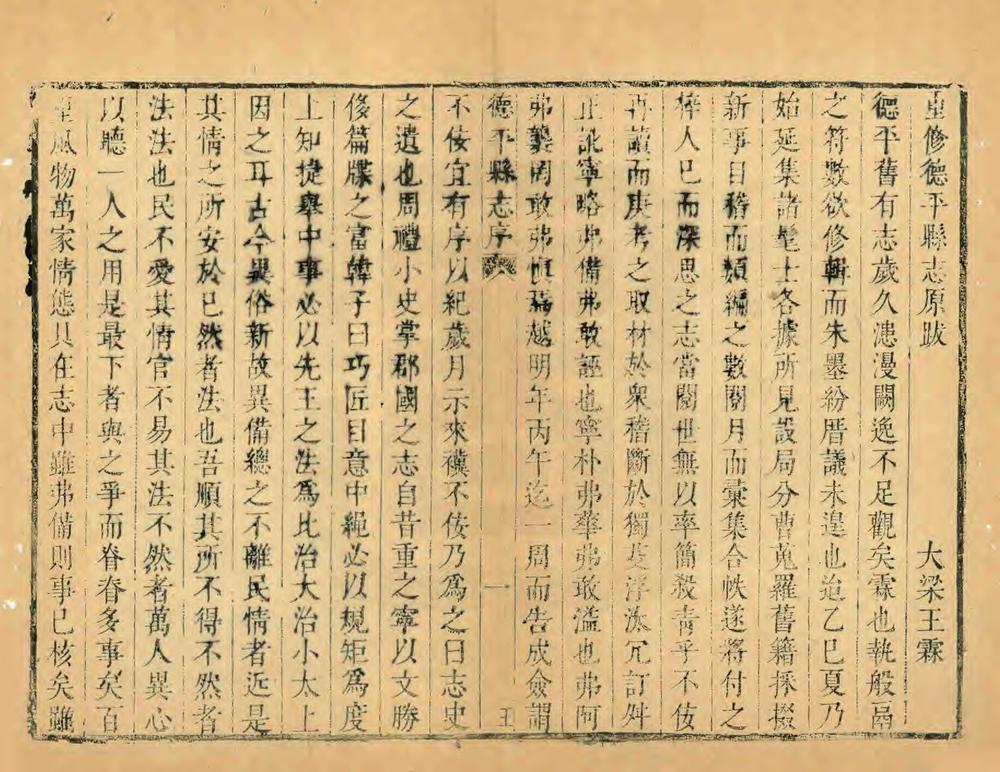 重修德平縣志原跋　　　大梁王霖
德平舊有志歲久漶漫闕逸不足觀矣霖也執般鬲
之符數欲修輯而朱墨紛厝議未遑也迨乙巳夏乃
始延集諸髦士各據所見設局分曹蒐羅舊籍採掇
新事目稽而類編之數閱月而彙集合帙遂將付之
梓人已而深思之志當閱世無以率簡殺青乎不佞
再讀而庚考之取材於衆稽斷於獨芟浮汰冗訂舛
正訛寧略弗備弗敢誣也寧朴弗華弗敢溢也弗阿
弗襲罔敢弗慎焉越明年丙午迄一周而告成僉謂
德平縣志序　一　五
不佞宜有序以紀歲月示來禩不佞乃爲之曰志史
之遺也周禮小史掌郡國之志自昔重之寧以文勝
侈篇牒之富韓子曰巧匠目意中繩必以規矩爲度
上知捷舉中事必以先王之法爲比治大治小太上
因之耳古今異俗新故異備總之不離民情者近是
其情之所安於已然者法也吾順其所不得不然者
法法也民不愛其情官不易其法不然者萬人異心
以聽一人之用是最下者與之爭而脊脊多事矣百
里風物萬家情態具在志中雖弗備則事已核矣雖